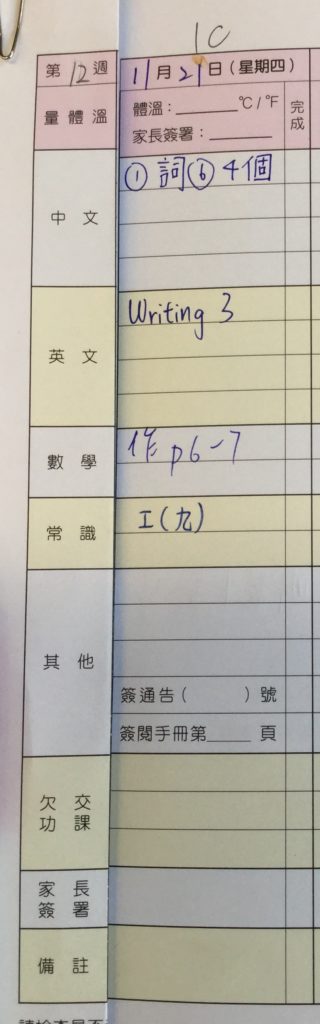 1C
第12週 11月21日(星期四)
量體溫 體溫:______°C/°F 完成
家長簽署:______
中文 ① 詞⑥ 4個
英文 Writing 3
數學 作 p6-7
常識 工(九)
其他
簽通告( )號
簽閱手冊第____頁
欠交功課
家長簽署
備註